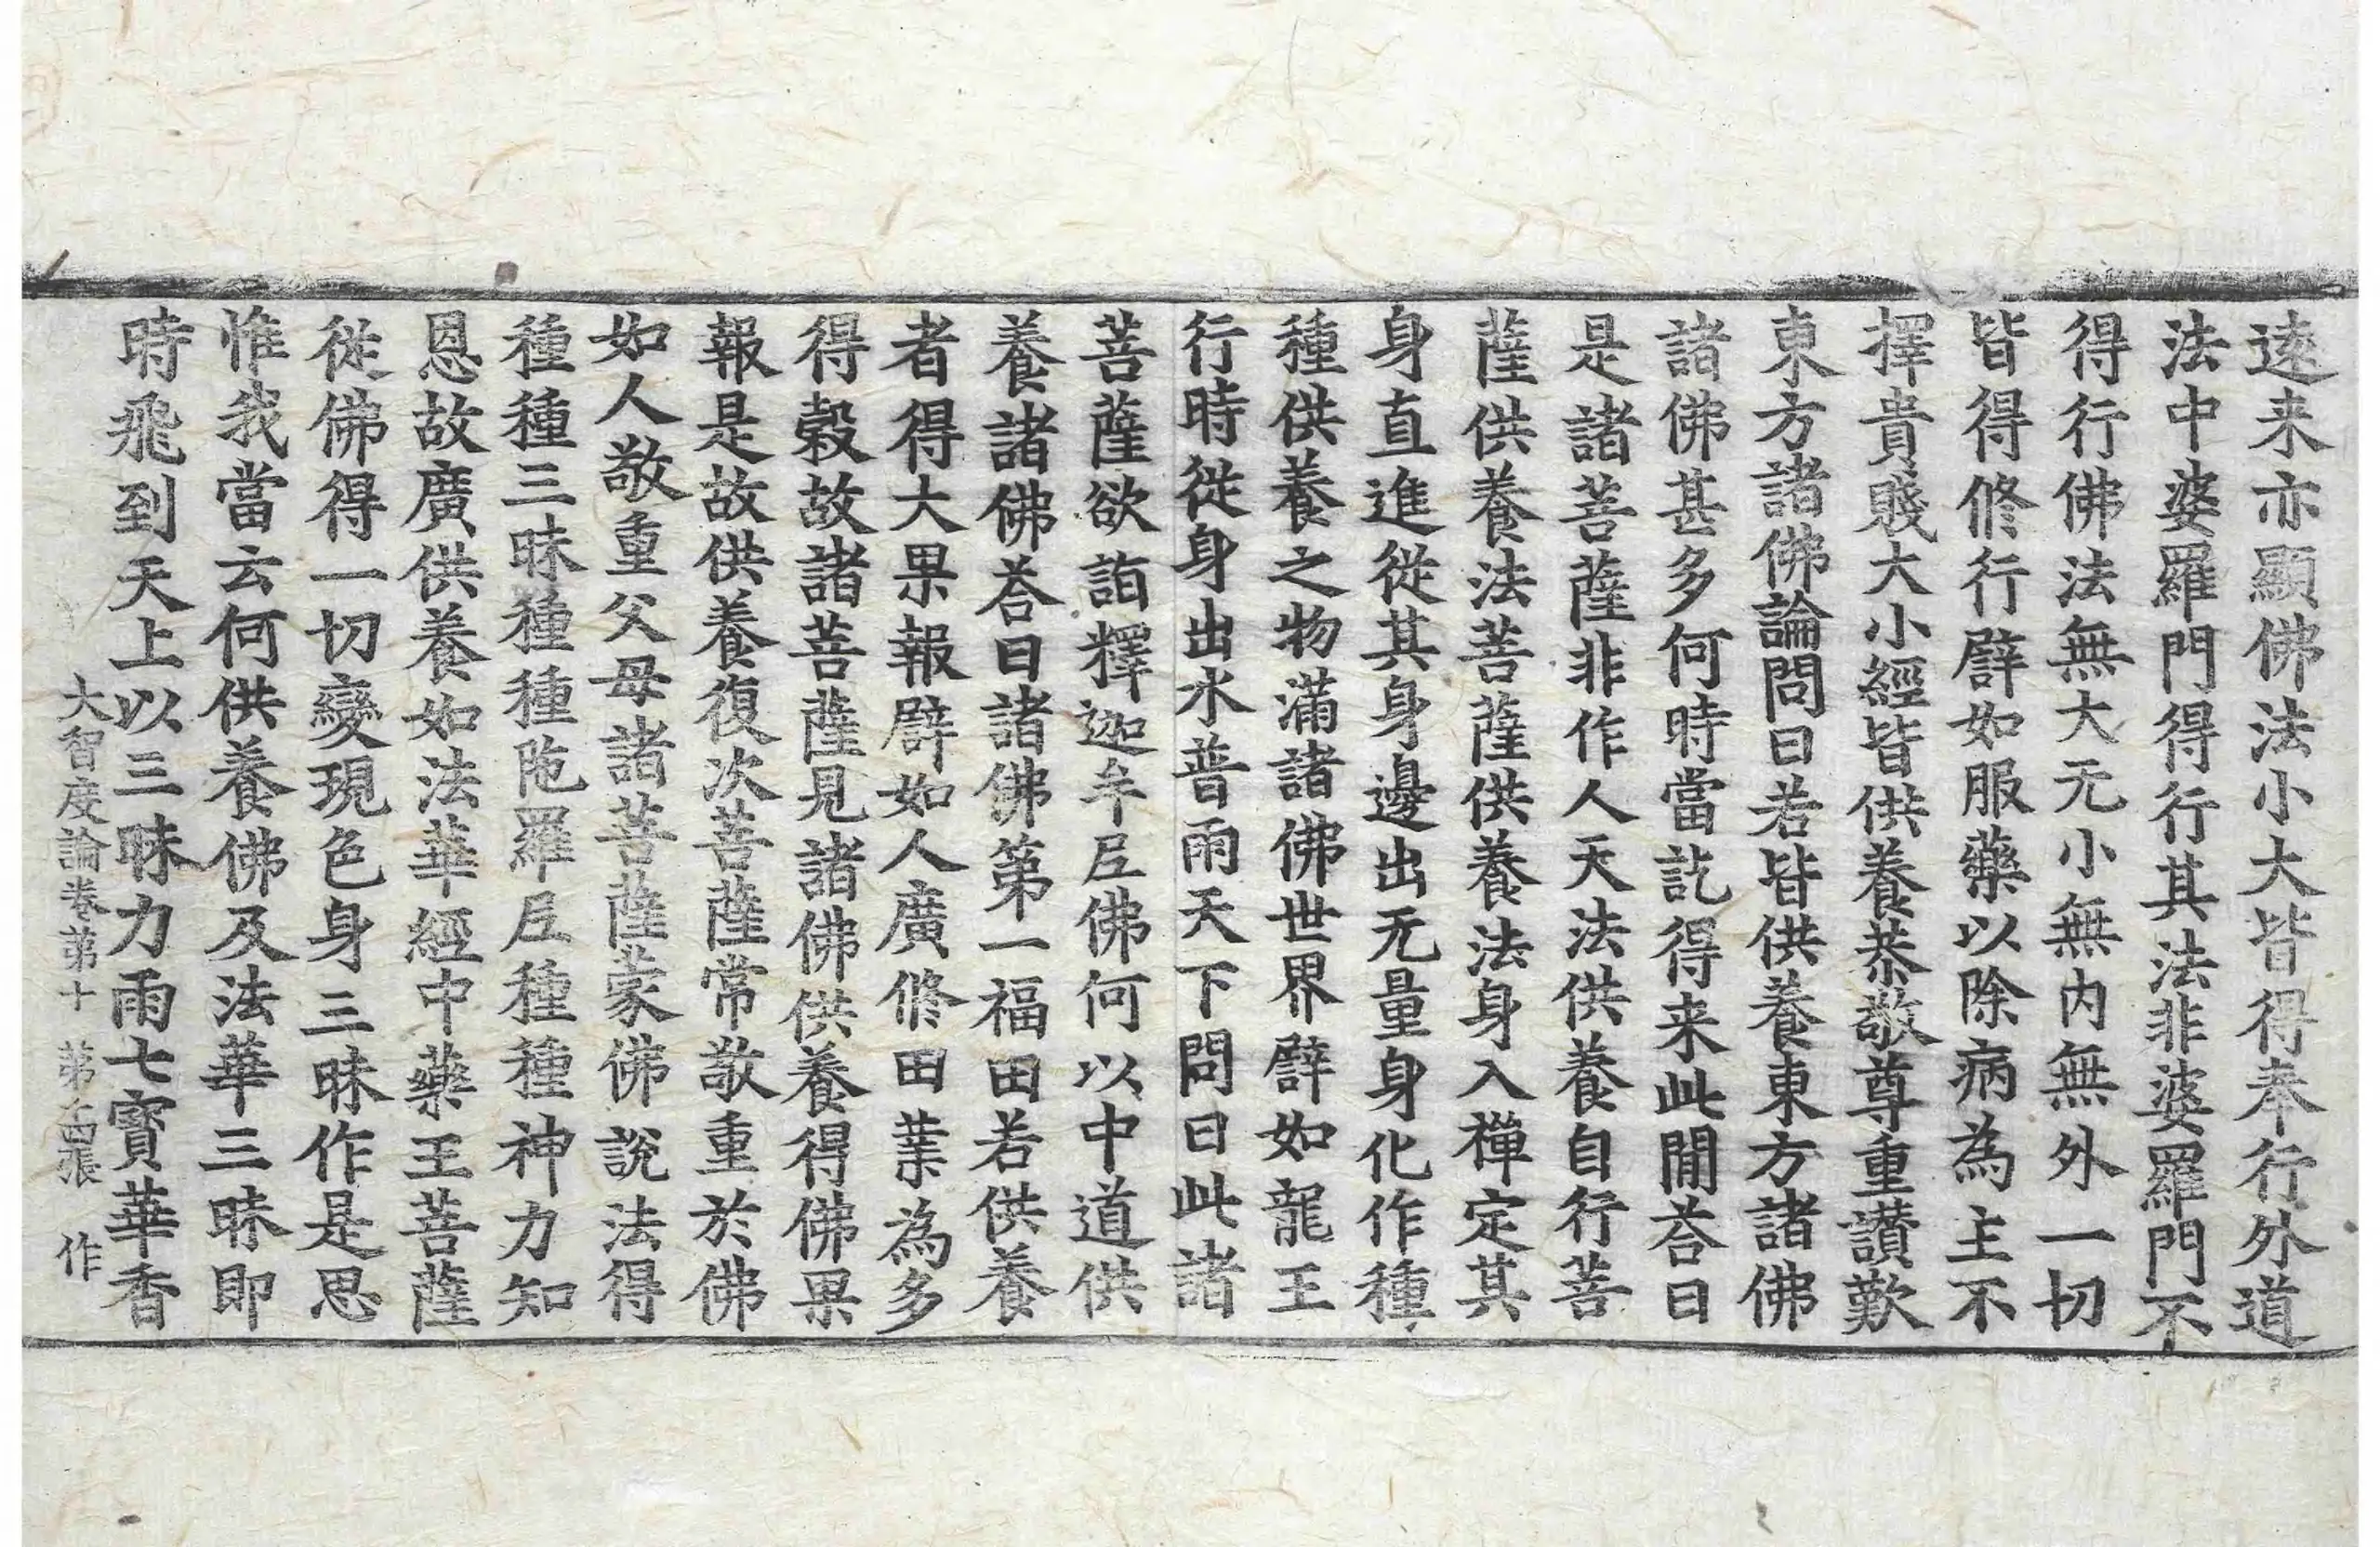 遠来亦顯佛法小大皆得奉行外道
法中婆羅門得行其法非婆羅門不
得行佛法無大无小無內無外一切
皆得修行譬如服藥以除病為主不
擇貴賤大小經皆供養恭敬尊重讃歎
東方諸佛論問曰若皆供養東方諸佛
諸佛甚多何時當訖得来此閒荅曰
是諸菩薩非作人天法供養自行菩
薩供養法菩薩供養法身入禪定其
身直進從其身邊出无量身化作種
種供養之物滿諸佛世界譬如龍王
行時從身出水普雨天下問曰此諸
菩薩欲詣釋迦牟尼佛何以中道供
養諸佛荅曰諸佛第一福田若供養
者得大果報譬如人廣修田業為多
得穀故諸菩薩見諸佛供養得佛果
報是故供養復次菩薩常敬重於佛
如人敬重父母諸菩薩蒙佛說法得
種種三昧種種陁羅尼種種神力知
恩故廣供養如法華經中藥王菩薩
從佛得一切變現色身三昧作是思
惟我當云何供養佛及法華三昧即
時飛到天上以三昧力雨七寶華香
大智度論卷弟十 弟古張 作